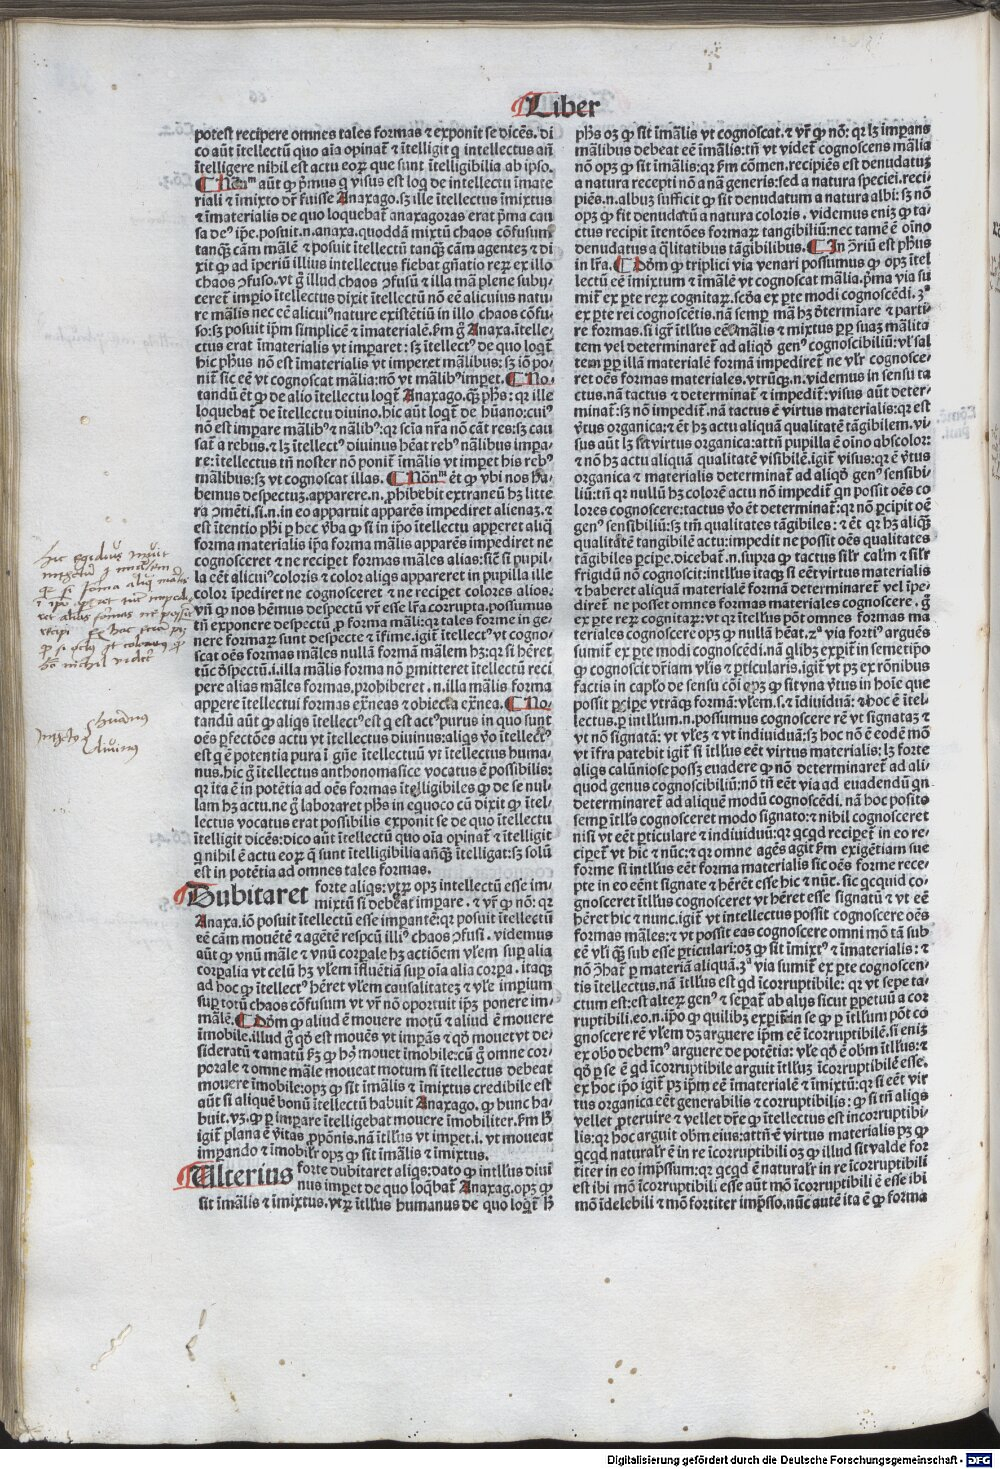 Liber
potest recipere omnes tales formas ⁊ exponit se dicēs. di
co aūt ītellectū quo aīa opinat̄ ⁊ ītelligit ꝙ intellectus an̄
ītelligere nihil est actu eoꝝ que sunt ītelligibilia ab ipso.
¶ Nōnᵐ aūt ꝙ pͥmus ꝙ visus est loq̄ de intellectu īmate
riali ⁊ īmixto vr̄ fuisse Anaxago. sꝫ ille ītellectus īmixtus
⁊ īmaterialis de quo loquebat̄ anaxagoras erat pͥma cau
sa deꝰ ip̄e. posuit .n. anaxa. quoddā mixtū chaos cōfusum
tanqꝫ cām māle ⁊ posuit ītellectū tanqꝫ cām agentez ⁊ di
xit ꝙ ad īperiū illius intellectus fiebat gn̄atio reꝝ ex illo
chaos ↄfuso. vt g̊ illud chaos ↄfusū ⁊ illa mā plene subij⸗
ceret̄ imꝑio ītellectus dixit ītellectū nō eē alicuius natu⸗
re mālis nec eē alicuiꝰ nature existētiū in illo chaos cōfu⸗
so: sꝫ posuit ip̄m simplicē ⁊ īmaterialē. fm̄ g̊ Anaxa. ītelle⸗
ctus erat īmaterialis vt imparet: sꝫ ītellectꝰ de quo loqͥt̄
hic pħus nō est īmaterialis vt imperet mālibus: sꝫ iō po⸗
nit̄ sic eē vt cognoscat mālia: nō vt mālibꝰ imꝑet. ¶ No⸗
tandū ēt ꝙ de alio ītellectu loqͥt̄ Anaxago. qꝫ pħs: qꝛ ille
loquebat̄ de ītellectu diuino. hic aūt loqͥt̄ de hūano: cuiꝰ
nō est impare mālibꝰ ⁊ nālibꝰ: qꝛ scīa nr̄a nō cāt res: sꝫ cau
sat̄ a rebus. ⁊ lꝫ ītellectꝰ diuinus hēat rebꝰ nālibus impa⸗
re: ītellectus tn̄ noster nō ponit̄ īmālis vt imꝑet his rebꝰ
mālibus: sꝫ vt cognoscat illas. ¶ Nōnᵐ ēt ꝙ vbi nos ha⸗
bemus despectuz. apparere .n. ꝓhibebit extraneū hꝫ litte
ra ↄmēti. si .n. in eo apparuit apparēs impediret alienaz. ⁊
est ītentio pħi ꝑ hec v̄ba ꝙ si in ip̄o ītellectu apperet aliqͣ
forma materialis ip̄a forma mālis apparēs impediret ne
cognosceret ⁊ ne reciꝑet formas māles alias: sic̄ si pupil⸗
la cēt alicuiꝰ coloris ⁊ color aliqͥs appareret in pupilla ille
color īpediret ne cognosceret ⁊ ne reciꝑet colores alios.
vn̄ ꝙ nos hēmus despectū vr̄ esse lr̄a corrupta. possumus
tn̄ exponere despectū ꝓ forma māli: qꝛ tales forme in ge⸗
nere formaꝝ sunt despecte ⁊ īfime. igit̄ ītellectꝰ vt cogno⸗
scat oēs formas māles nullā formā mālem hꝫ: qꝛ si hēret
tūc d̄spectū .i. illa mālis forma nō ꝑmitteret ītellectū reci
pere alias māles formas. prohiberet .n. illa mālis forma
appere ītellectui formas ex̄neas ⁊ obiecta ex̄nea. ¶ No⸗
tandū aūt ꝙ aliqͥs ītellectꝰ est qͥ est actꝰ purus in quo sunt
oēs ꝑfectōes actu vt ītellectus diuinus: aliqͥs vo ītellectꝰ
est qͥ ē potentia pura ī gn̄e ītellectuū vt ītellectus huma⸗
nus. hic g̊ ītellectus anthonomasice vocatus ē possibilis:
qꝛ ita ē in potētia ad oēs formas ītelligibiles ꝙ de se nul⸗
lam hꝫ actu. ne g̊ laboraret pħs in equoco cū dixit ꝙ ītel⸗
lectus vocatus erat possibilis exponit se de quo ītellectu
ītelligit dicēs: dico aūt ītellectū quo oīa opinat̄ ⁊ ītelligit
ꝙ nihil ē actu eoꝝ q̄ sunt ītelligibilia an̄qꝫ ītelligat: sꝫ solū
est in potētia ad omnes tales formas.
¶ Dubitaret forte aliqͥs: vtꝝ opꝫ intellectū esse im⸗
mixtū si debeat impare. ⁊ vr̄ ꝙ nō: qꝛ
Anaxa. iō posuit ītellectū esse impantē: qꝛ posuit ītellectū
eē cām mouētē ⁊ agētē respcū illiꝰ chaos ↄfusi. videmus
aūt ꝙ vnū māle ⁊ vnū corꝑale hꝫ actiōem vl̄em suꝑ alia
corꝑalia vt celū hꝫ vl̄em īfluētiā suꝑ oīa alia corpa. itaqꝫ
ad hoc ꝙ ītellectꝰ hēret vl̄em causalitatez ⁊ vl̄e imꝑium
suꝑ totū chaos cōfusum vt vr̄ nō oportuit ip̄ꝫ ponere im⸗
mālē. ¶ Dōm ꝙ aliud ē mouere motū ⁊ aliud ē mouere
īmobile. illud g̊ qd̄ est mouēs vt impās ⁊ qd̄ mouet vt de⸗
sideratū ⁊ amatū hꝫ ꝙ hꝫ mouet īmobile: cū g̊ omne cor⸗
porale ⁊ omne māle moueat motum si ītellectus debeat
mouere īmobile: opꝫ ꝙ sit īmālis ⁊ īmixtus credibile est
aūt si aliquē bonū ītellectū habuit Anaxago. ꝙ hunc ha⸗
buit. vꝫ. ꝙ ꝑ impare ītelligebat mouere īmobiliter. fm̄ ħ
igit̄ plana ē v̄itas ꝓpōnis. nā ītlls̄us vt imꝑet .i. vt moueat
imꝑando ⁊ īmobilr̄ opꝫ ꝙ sit īmālis ⁊ īmixtus.
¶ Ulterius forte dubitaret aliqͥs: dato ꝙ intllus diui
nus imꝑet de quo loqͥbat̄ Anaxag. opꝫ ꝙ
sit īmālis ⁊ īmixtus. vtꝝ ītllus humanus de quo loqͥt̄ ħ
pħs oꝫ ꝙ sit īmālis vt cognoscat. ⁊ vr̄ ꝙ nō: qꝛ lꝫ impans
mālibus debeat eē īmālis: tn̄ vt videt̄ cognoscens mālia
nō opꝫ ꝙ sit īmālis: qꝛ fm̄ cōmen. recipiēs est denudatuꝫ
a natura recepti nō a nā generis: sed a natura speciei. reci⸗
piēs .n. albuꝫ sufficit ꝙ sit denudatum a natura albi: sꝫ nō
opꝫ ꝙ sit denudatū a natura coloris. videmus eniꝫ ꝙ ta⸗
ctus recipit ītentōes formaꝝ tangibiliū: nec tamē ē oīno
denudatus a qͣlitatibus tāgibilibus. ¶ In ↄ̄riū est pħus
in lr̄a. ¶ Dōm ꝙ triplici via venari possumus ꝙ opꝫ ītel
lectū eē īmixtum ⁊ īmālē vt cognoscat mālia. pͥma via su
mit̄ ex ꝑte reꝝ cognitaꝝ. scd̄a ex ꝑte modi cognoscēdi. 3ᵃ
ex ꝑte rei cognoscētis. nā semꝑ mā hꝫ d̄termiare ⁊ parti⸗
re formas. si igit̄ ītllus eēt mālis ⁊ mixtus ꝑp suaꝫ mālita
tem vel determinaret̄ ad aliqd̄ genꝰ cognoscibiliū: vl̓ sal
tem ꝑp illā materialē formā impediret̄ ne vl̓r cognosce⸗
ret oēs formas materiales. vtrūqꝫ .n. videmus in sensu ta
ctus. nā tactus ⁊ determinat̄ ⁊ impedit̄: visus aūt deter⸗
minat̄: sꝫ nō impedit̄. nā tactus ē virtus materialis: qꝛ est
v̄tus organica: ⁊ ēt hꝫ actu aliquā qualitatē tāgibilem. vi⸗
sus aūt lꝫ sit virtus organica: attn̄ pupilla ē oīno abscolor:
⁊ nō hꝫ actu aliquā qualitatē visibilē. igit̄ visus: qꝛ ē v̄tus
organica ⁊ materialis determinat̄ ad aliqd̄ genꝰ sensibi⸗
liū: tn̄ qꝛ nullū hꝫ colorē actu nō impedit̄ qn̄ possit oēs co
lores cognoscere: tactus v̊o ēt determinat̄: qꝛ nō ꝑcipit oē
genꝰ sensibiliū: sꝫ tm̄ qualitates tāgibiles: ⁊ ēt qꝛ hꝫ aliqͣꝫ
qualitatē tangibilē actu: impedit̄ ne possit oēs qualitates
tāgibiles ꝑcipe. dicebat̄ .n. supra ꝙ tactus sil̓r calm̄ ⁊ sil̓r
frigidū nō cognoscit: intllus itaqꝫ si eēt virtus materialis
⁊ haberet aliquā materialē formā determinaret̄ vel īpe⸗
diret̄ ne posset omnes formas materiales cognoscere. g̊
ex ꝑte reꝝ cognitaꝝ: vt qꝛ ītllus pōt omnes formas ma
teriales cognoscere opꝫ ꝙ nullā hēat. 2ᵃ via fortiꝰ arguēs
sumit̄ ex ꝑte modi cognoscēdi. nā qͥlibꝫ exꝑit̄ in semetip̄o
ꝙ cognoscit dr̄iam vl̓is ⁊ ꝑticularis. igit̄ vt pꝫ ex rōnibus
factis in cap̄lo de sensu cōi opꝫ ꝙ sit vna v̄tus in hoīe que
possit ꝑcipe vtrāqꝫ formā: vl̓em .s. ⁊ īdiuiduā: ⁊ hoc ē ītel⸗
lectus. ꝑ intllum .n. possumus cognoscere rē vt signataꝫ ⁊
vt nō signatā: vt vl̓eꝫ ⁊ vt indiuiduā: sꝫ hoc nō ē eodē mō
vt īfra patebit igit̄ si ītllus eēt virtus materialis: lꝫ forte
aliqͥs calūniose possꝫ euadere ꝙ nō determinaret̄ ad ali⸗
quod genus cognoscibiliū: nō tn̄ eēt via ad euadendū qn̄
determinaret̄ ad aliquē modū cognoscēdi. nā hoc posito
semꝑ ītlls̄ cognosceret modo signato: ⁊ nihil cognosceret
nisi vt eēt ꝑticulare ⁊ indiuiduū: qꝛ qcqd recipet̄ in eo re⸗
cipet̄ vt hic ⁊ nūc: ⁊ qꝛ omne agēs agit fm̄ exigētiam sue
forme si intllus eēt forma materialis sic oēs forme rece⸗
pte in eo eēnt signate ⁊ hēr̄et esse hic ⁊ nūc. sic qcquid co⸗
gnosceret ītllus cognosceret vt hēret esse signatū ⁊ vt eē
hēret hic ⁊ nunc. igit̄ vt intellectus possit cognoscere oēs
formas māles: ⁊ vt possit eas cognoscere omni mō tā sub
eē vl̓i qꝫ sub esse ꝑticulari: oꝫ ꝙ sit īmixtꝰ ⁊ īmaterialis: ⁊
nō ↄ̄hat̄ ꝑ materiā aliquā. 3ᵃ via sumit̄ ex ꝑte cognoscen⸗
tis ītellectus. nā ītllus est qd̄ īcorruptibile: qꝛ vt sepe ta⸗
ctum est: est alteꝝ genꝰ ⁊ seꝑat̄ ab alijs sicut ꝑpetuū a cor
ruptibili. eo .n. ip̄o ꝙ quilibꝫ exꝑit̄ in se ꝙ ꝑ ītllum pōt co
gnoscere rē vl̓em dꝫ arguere ip̄m eē īcorruptibilē. si eniꝫ
ex obo debemꝰ arguere de potētia: vl̓e qd̄ ē obm̄ ītllus: ⁊
qd̄ ꝑ se ē qd̄ īcorruptibile arguit ītllus īcorruptibilē esse.
ex hoc ip̄o igit̄ pꝫ ip̄m eē īmaterialē ⁊ īmixtū: qꝛ si eēt vir
tus organica eēt generabilis ⁊ corruptibilis: ꝙ si tn̄ aliqͥs
vellet ꝓteruire ⁊ vellet dr̄e ꝙ ītellectus est incorruptibi⸗
lis: qꝛ hoc arguit obm̄ eius: attn̄ ē virtus materialis pꝫ ꝙ
qcqd naturalr̄ ē in re īcorruptibili oꝫ ꝙ illud sit valde for
titer in eo imp̄ssum: qꝛ qcqd ē naturalr̄ in re īcorruptibili
est ibi mō īcorruptibili esse aūt mō īcorruptibili ē esse ibi
mō īdelebili ⁊ mō fortiter imp̄sso. nūc autē ita ē ꝙ forma
hic egidius
humanus
Intellectus
diuinus
Digitalisierung gefördert durch die Deutsche Forschungsgemeinschaft - DFG